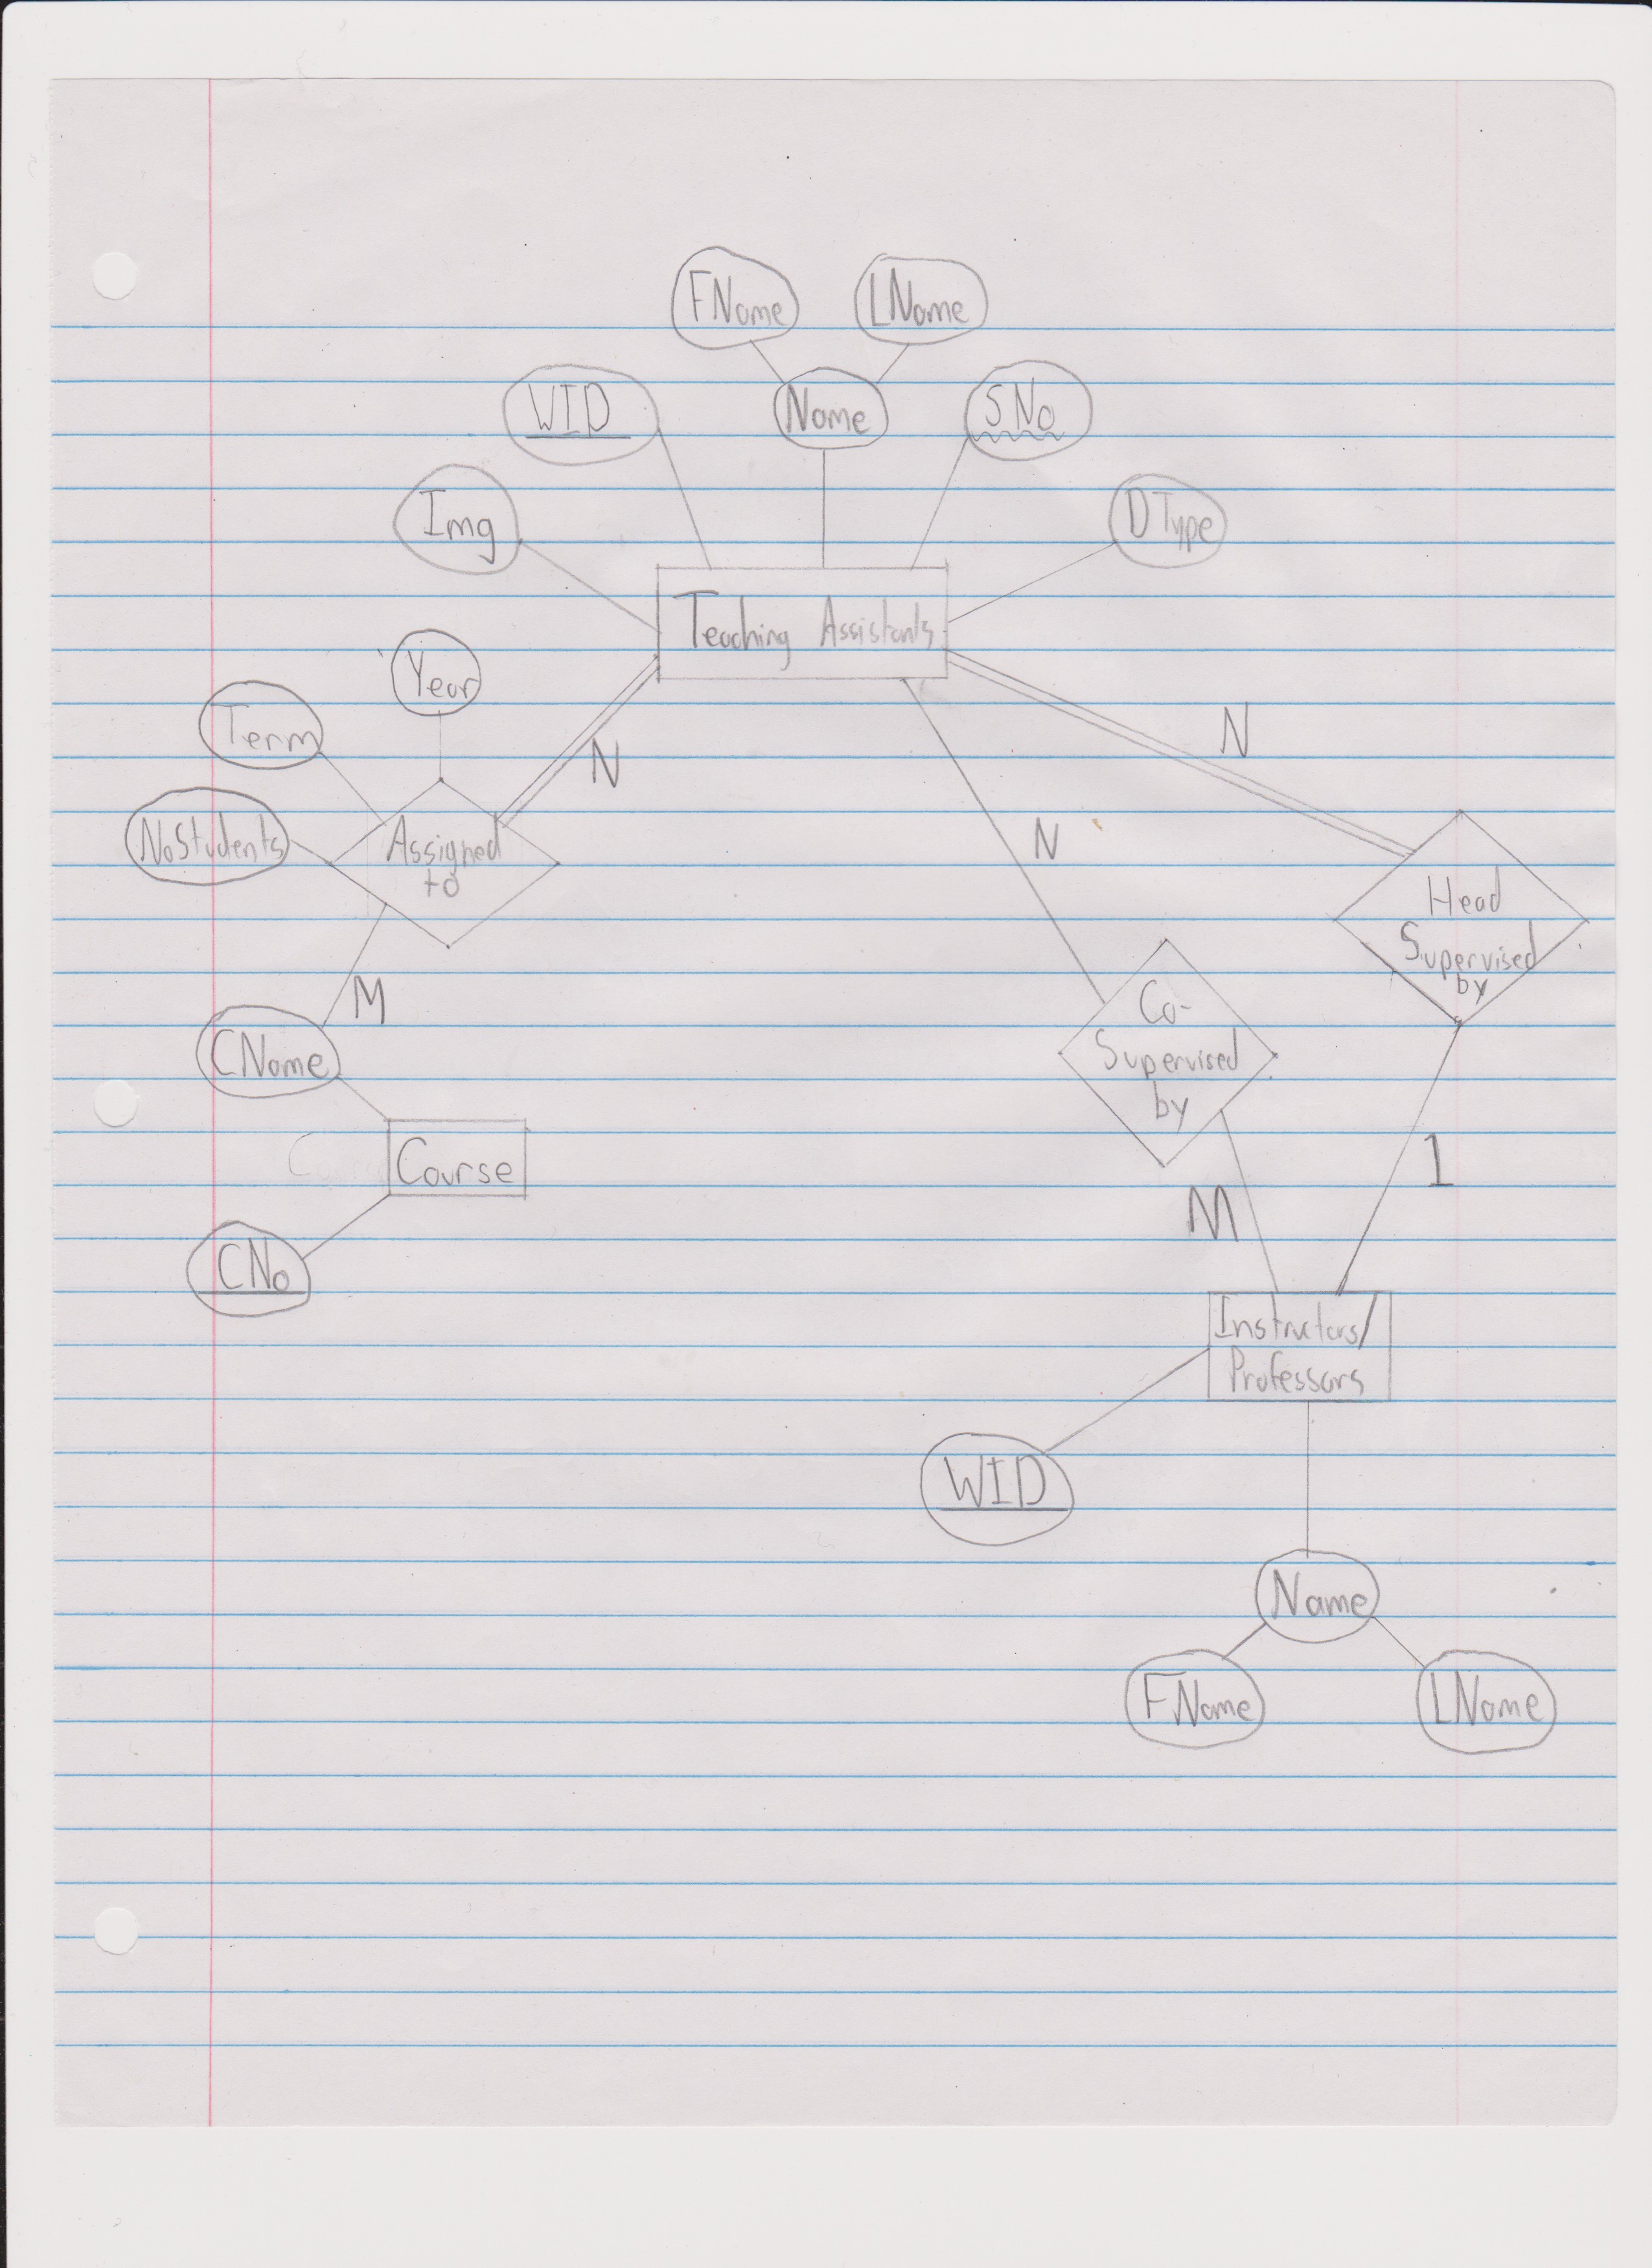 FName
LName
WID
Name
SNo
Img
DType
Teaching Assistants
Year
Term
N
N
NoStudents
Assigned
to
N
Head
Supervised
by
M
Co-
Supervised
by
CName
Course
1
M
CNo
Instructors/
Professors
WID
Name
FName
LName